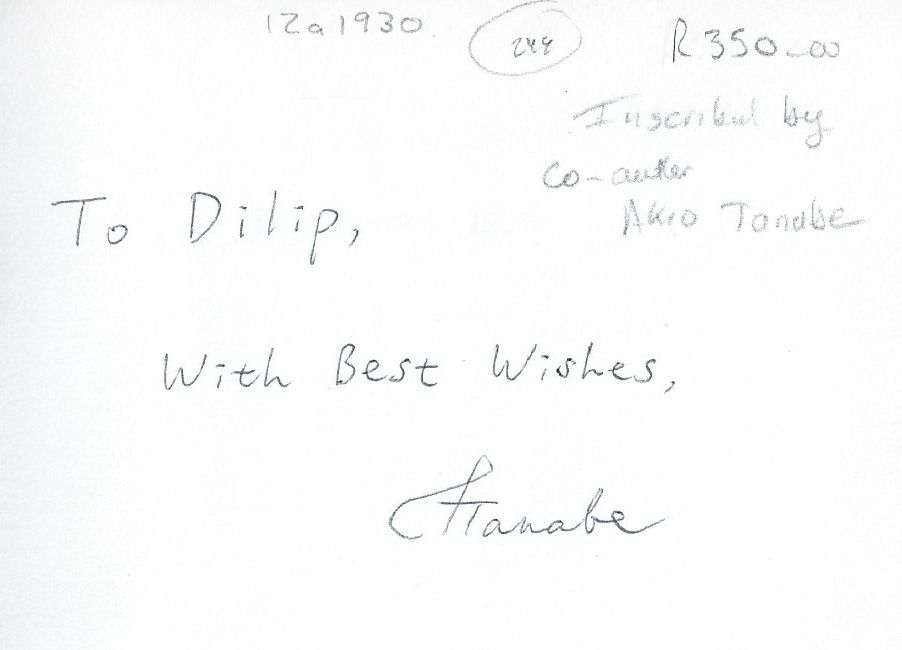 12a1930
244
R350-00
Inscribed by
co-auter
Akio Tanabe
To Dilip,
With Best Wishes,
ATanabe